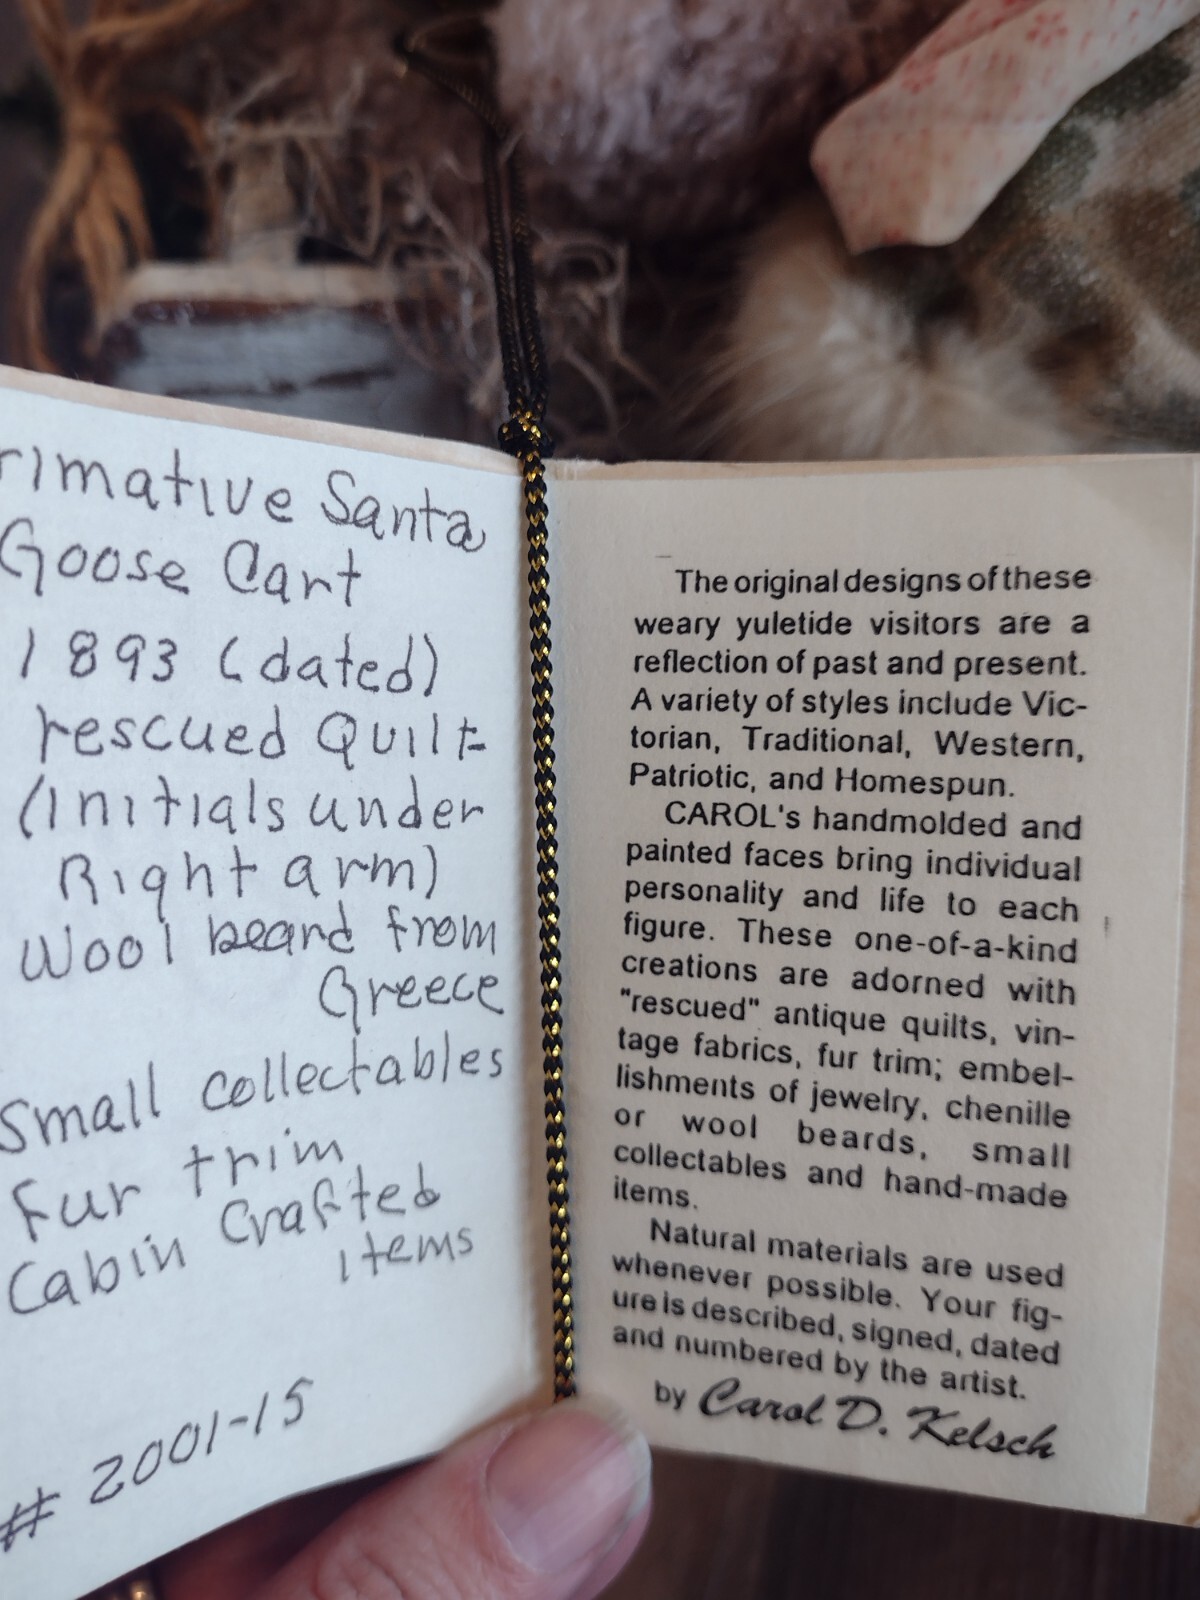 rimative Santa
Goose Cart
1893 (dated)
rescued Quilt
(initials under
Right arm)
Wool beard from
Greece
Small collectables
Fur trim
Cabin Crafted
items
# 2001-15
The original designs of these
weary yuletide visitors are a
reflection of past and present.
A variety of styles include Vic-
torian, Traditional, Western,
Patriotic, and Homespun.
CAROL's handmolded and
painted faces bring individual
personality and life to each
figure. These one-of-a-kind
creations are adorned with
"rescued" antique quilts, vin-
tage fabrics, fur trim; embel-
lishments of jewelry, chenille
or wool beards, small
collectables and hand-made
items.
Natural materials are used
whenever possible. Your fig-
ure is described, signed, dated
and numbered by the artist.
by Carol D. Kelsch